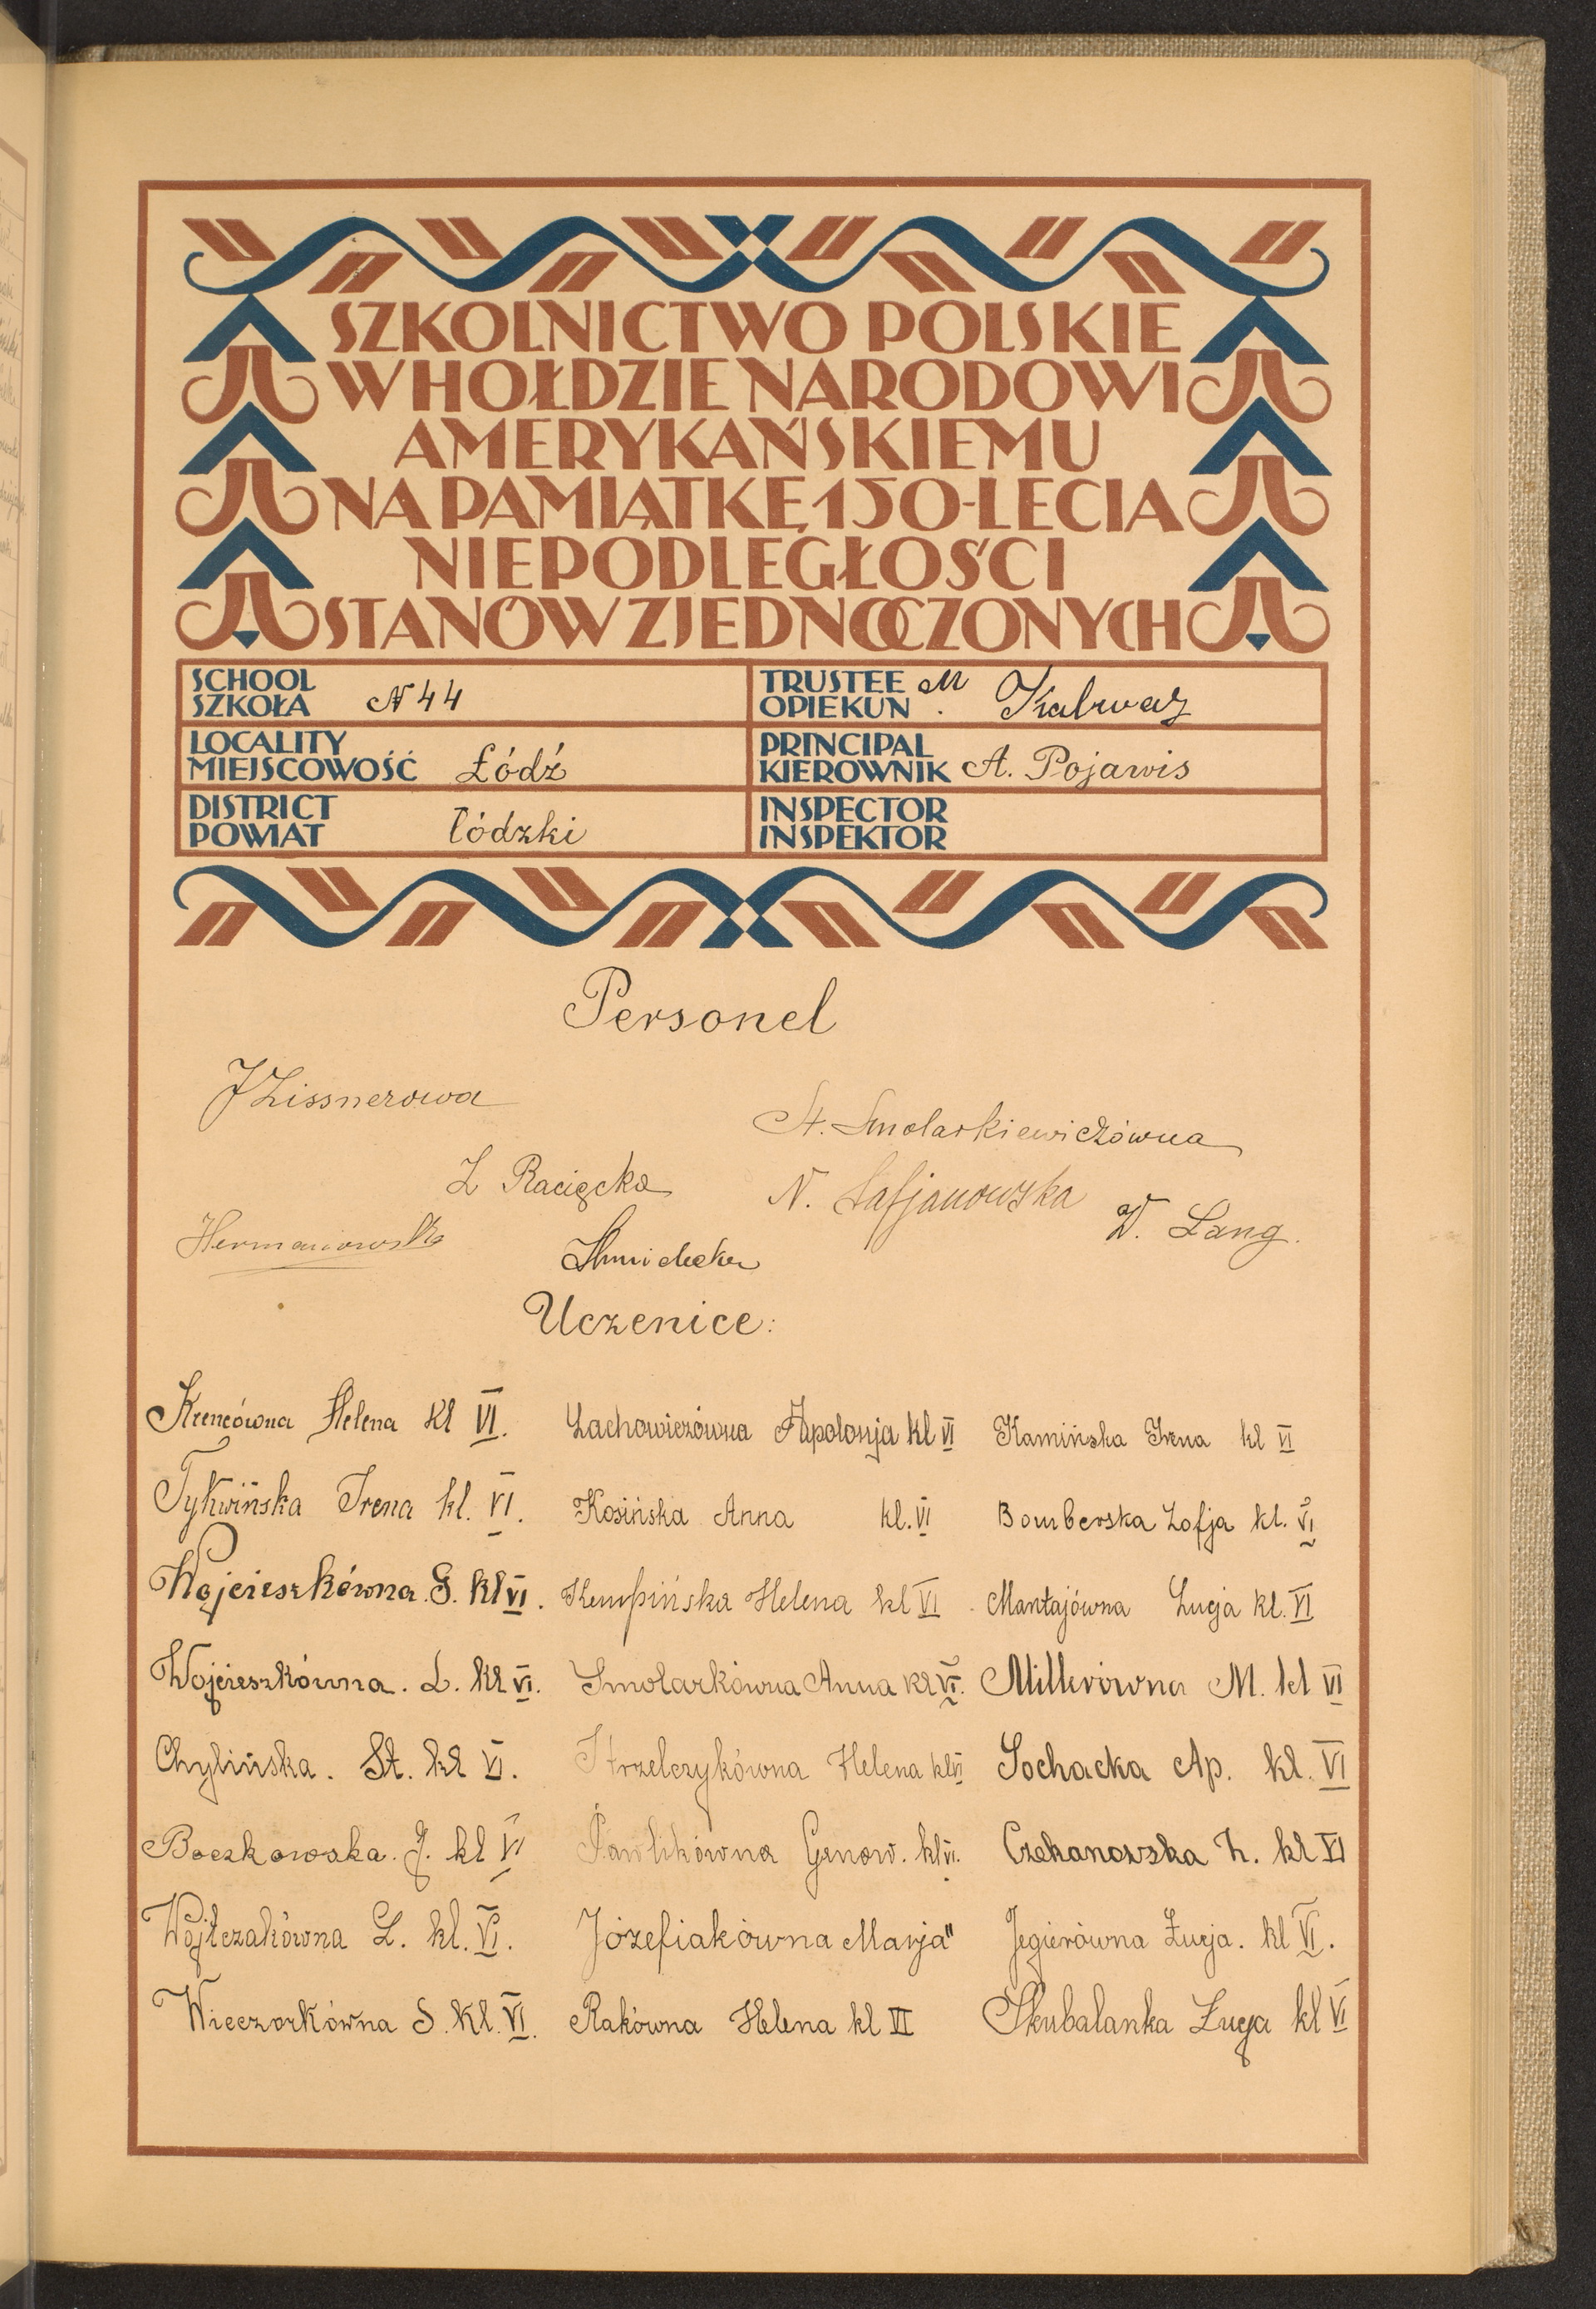 SZKOLNICTWO POLSKIE
W HOŁDZIE NARODOWI
AMERYKAŃSKIEMU
NA PAMIĄTKĘ 150-LECIA
NIEPODLEGŁOŚCI
STANÓW ZJEDNOCZONYCH
SCHOOL
SZKOŁA N 44
TRUSTEE
OPIEKUN M. Kalwaj
LOCALITY
MIEJSCOWOŚĆ Łódź
PRINCIPAL
KIEROWNIK A. Pojawis
DISTRICT
POWIAT łódzki
INSPECTOR
INSPEKTOR
Personel
J Lissnerowa
St. Smolarkiewiczówna
Z Racięcka
N. Stafjanowska
W. Lang.
Hermanowska
Uczenice:
Krencówna Helena kl VI. Lachowiczówna Apolonja kl VI Kamińska Irena kl VI
Tykwińska Irena kl. VI. Kosińska Anna kl. VI Bomberska Zofja kl. VI
Wojcieszkówna. G. kl VI. Kempińska Helena kl VI. Mantajówna Łucja kl. VI
Wojcieszkówna. L. kl VI. Smolarkówna Anna kl VI. Millerówna M. kl VI
Chylińska. St. kl VI. Strzelczykówna Helena kl VI Sochacka Ap. kl. VI
Boczkowska. J. kl VI Pawlikówna Genow. kl VI. Czekanowska Z. kl VI
Wojtczakówna L. kl. VI. Józefiakówna Marja" Jegierówna Łucja. kl VI.
Wieczorkówna S. kl. VI. Rakówna Helena kl VI Skubalanka Łucja kl VI